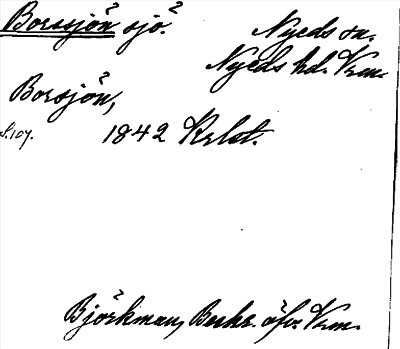 Borssjön sjö.
Nyeds sn.
Nyeds hd. Vrm.
Borsjön,
S. 107.
1842 Krlst.
Björkman, Beskr. öfv. Vrm.